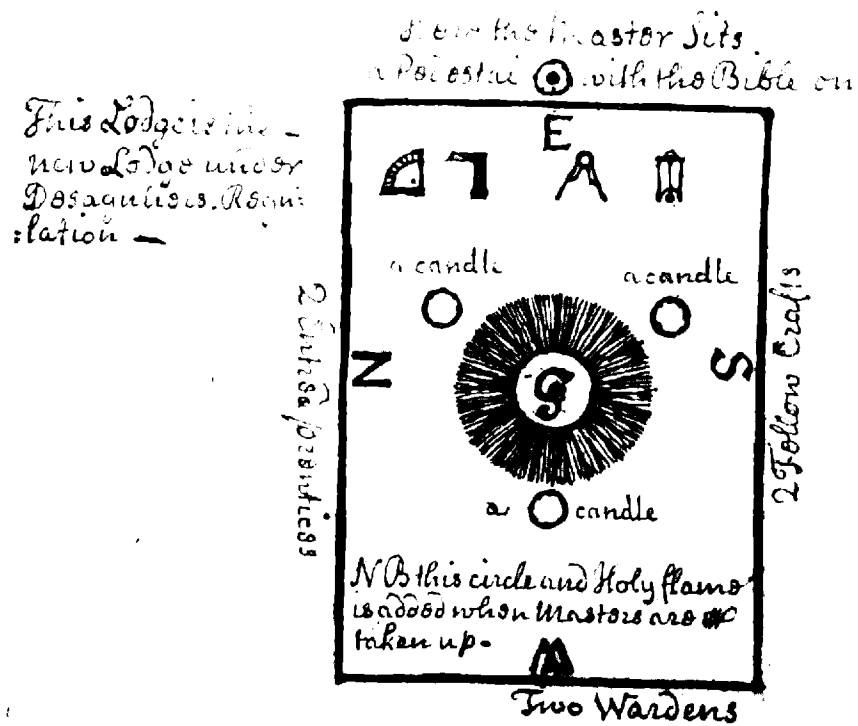 Here the Master Sits
a Pedestal with the Bible on
This Lodge is the -
new Lodge under
Desaguliers. Regu:
:lation -
E
a candle
a candle
2 Entred prentices
N
G
S
2 Fellow Crafts
a candle
NB this circle and Holy flame
is added when Masters are
taken up.
W
Two Wardens